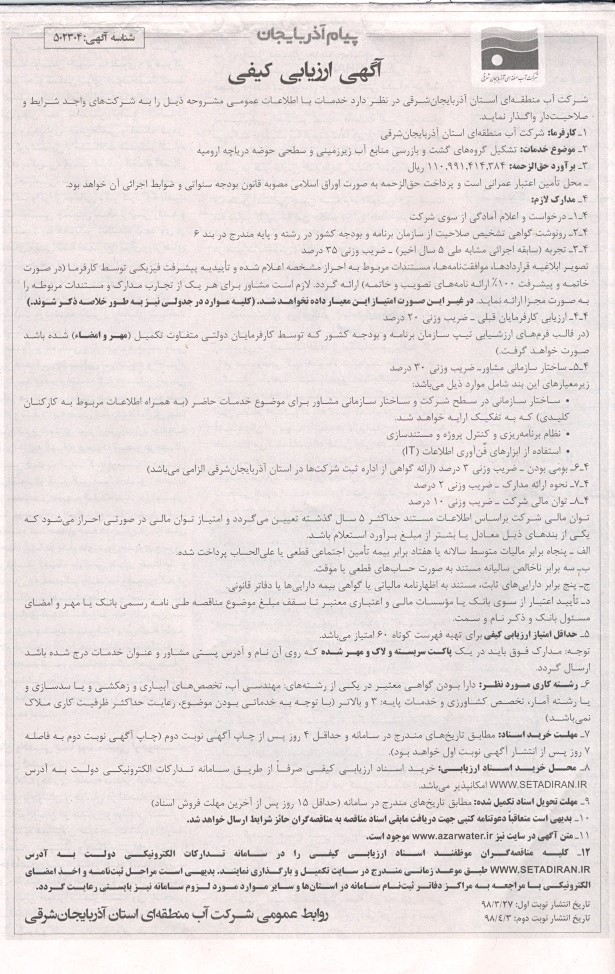 پیام آذربایجان
شناسه آگهی: ۵۰۲۳۰۴
شرکت آب منطقه‌ای آذربایجان شرقی
آگهی ارزیابی کیفی
شرکت آب منطقه‌ای استان آذربایجان‌شرقی در نظر دارد خدمات با اطلاعات عمومی مشروحه ذیل را به شرکت‌های واجد شرایط و
صلاحیت‌دار واگذار نماید.
۱ـ کارفرما: شرکت آب منطقه‌ای استان آذربایجان‌شرقی
۲ـ موضوع خدمات: تشکیل گروه‌های گشت و بازرسی منابع آب زیرزمینی و سطحی حوضه دریاچه ارومیه
۳ـ برآورد حق‌الزحمه: ۱۱۰,۹۹۱,۴۱۴,۳۸۴ ریال
ـ محل تأمین اعتبار عمرانی است و پرداخت حق‌الزحمه به صورت اوراق اسلامی مصوبه قانون بودجه سنواتی و ضوابط اجرائی آن خواهد بود.
۴ـ مدارک لازم:
۴ـ۱ـ درخواست و اعلام آمادگی از سوی شرکت
۴ـ۲ـ رونوشت گواهی تشخیص صلاحیت از سازمان برنامه و بودجه کشور در رشته و پایه مندرج در بند ۶
۴ـ۳ـ تجربه (سابقه اجرائی مشابه طی ۵ سال اخیر) ـ ضریب وزنی ۳۵ درصد
تصویر ابلاغیه قراردادها، موافقت‌نامه‌ها، مستندات مربوط به احراز مشخصه اعلام شده و تأییدیه پیشرفت فیزیکی توسط کارفرما (در صورت
خاتمه و پیشرفت ۱۰۰٪ ارائه نامه‌های تصویب و خاتمه) ارائه گردد. لازم است مشاور برای هر یک از تجارب مدارک و مستندات مربوطه را
به صورت مجزا ارائه نماید. در غیر این صورت امتیاز این معیار داده نخواهد شد. (کلیه موارد در جدولی نیز به طور خلاصه ذکر شوند.)
۴ـ۴ـ ارزیابی کارفرمایان قبلی ـ ضریب وزنی ۲۰ درصد
(در قالب فرم‌های ارزشیابی تیپ سازمان برنامه و بودجه کشور که توسط کارفرمایان دولتی متفاوت تکمیل (مهر و امضاء) شده باشد
صورت خواهد گرفت.)
۴ـ۵ـ ساختار سازمانی مشاورـ ضریب وزنی ۳۰ درصد
زیرمعیارهای این بند شامل موارد ذیل می‌باشد:
• ساختار سازمانی در سطح شرکت و ساختار سازمانی مشاور برای موضوع خدمات حاضر (به همراه اطلاعات مربوط به کارکنان
کلیدی) که به تفکیک ارایه خواهد شد.
• نظام برنامه‌ریزی و کنترل پروژه و مستندسازی
• استفاده از ابزارهای فن‌آوری اطلاعات (IT)
۴ـ۶ـ بومی بودن ـ ضریب وزنی ۳ درصد (ارائه گواهی از اداره ثبت شرکت‌ها در استان آذربایجان‌شرقی الزامی می‌باشد)
۴ـ۷ـ نحوه ارائه مدارک ـ ضریب وزنی ۲ درصد
۴ـ۸ـ توان مالی شرکت ـ ضریب وزنی ۱۰ درصد
توان مالی شرکت براساس اطلاعات مستند حداکثر ۵ سال گذشته تعیین می‌گردد و امتیاز توان مالی در صورتی احراز می‌شود که
یکی از بندهای ذیل معادل یا بیشتر از مبلغ برآورد استعلام باشد.
الف ـ پنجاه برابر مالیات متوسط سالانه یا هفتاد برابر بیمه تأمین اجتماعی قطعی یا علی‌الحساب پرداخت شده.
ب ـ سه برابر ناخالص سالیانه مستند به صورت حساب‌های قطعی یا موقت.
ج ـ پنج برابر دارایی‌های ثابت، مستند به اظهارنامه مالیاتی یا گواهی بیمه دارایی‌ها یا دفاتر قانونی.
د ـ تأیید اعتبار از سوی بانک یا مؤسسات مالی و اعتباری معتبر تا سقف مبلغ موضوع مناقصه طی نامه رسمی بانک با مهر و امضای
مسئول بانک و ذکر نام و سمت.
۵ـ حداقل امتیاز ارزیابی کیفی برای تهیه فهرست کوتاه ۶۰ امتیاز می‌باشد.
توجه: مدارک فوق باید در یک پاکت سربسته و لاک و مهر شده که روی آن نام و آدرس پستی مشاور و عنوان خدمات درج شده باشد
ارسال گردد.
۶ـ رشته کاری مورد نظر: دارا بودن گواهی معتبر در یکی از رشته‌های: مهندسی آب، تخصص‌های آبیاری و زهکشی و یا سدسازی و
یا رشته آمار، تخصص کشاورزی و خدمات پایه: ۳ و بالاتر (با توجه به خدماتی بودن موضوع، رعایت حداکثر ظرفیت کاری ملاک
نمی‌باشد)
۷ـ مهلت خرید اسناد: مطابق تاریخ‌های مندرج در سامانه و حداقل ۴ روز پس از چاپ آگهی نوبت دوم (چاپ آگهی نوبت دوم به فاصله
۷ روز پس از انتشار آگهی نوبت اول خواهد بود).
۸ـ محل خرید اسناد ارزیابی: خرید اسناد ارزیابی کیفی صرفاً از طریق سامانه تدارکات الکترونیکی دولت به آدرس
WWW.SETADIRAN.IR امکانپذیر می‌باشد.
۹ـ مهلت تحویل اسناد تکمیل شده: مطابق تاریخ‌های مندرج در سامانه (حداقل ۱۵ روز پس از آخرین مهلت فروش اسناد)
۱۰ـ بدیهی است متعاقباً دعوتنامه کتبی جهت دریافت مابقی اسناد مناقصه به مناقصه‌گران حائز شرایط ارسال خواهد شد.
۱۱ـ متن آگهی در سایت نیز www.azarwater.ir موجود است.
۱۲ـ کلیه مناقصه‌گران موظفند اسناد ارزیابی کیفی را در سامانه تدارکات الکترونیکی دولت به آدرس
WWW.SETADIRAN.IR طبق موعد زمانی مندرج در سایت تکمیل و بارگذاری نمایند. بدیهی است مراحل ثبت‌نامه و اخذ امضای
الکترونیکی با مراجعه به مراکز دفاتر ثبت‌نام سامانه در استان‌ها و سایر موارد مورد لزوم سامانه نیز بایستی رعایت گردد.
تاریخ انتشار نوبت اول: ۹۸/۳/۲۷
تاریخ انتشار نوبت دوم: ۹۸/۴/۳
روابط عمومی شرکت آب منطقه‌ای استان آذربایجان‌شرقی